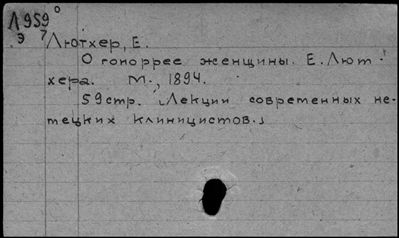 Л959°
Э 7
Лютхер, Е.
О гоноррее женщины. Е. Лют-
хера. М., 1894.
59 стр. [Лекции современных не-
мецких клиницистов.]